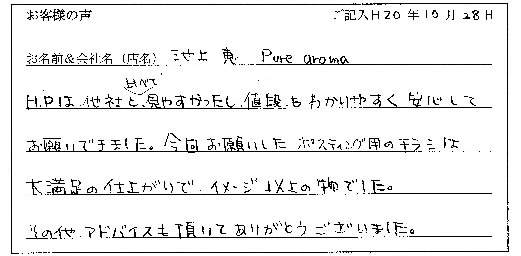 お客様の声 ご記入日 20年10月28日
お名前&会社名(店名) 池上 恵 Pure aroma
H.Pは他社と比べて見やすかったし、値段もわかりやすく安心して
お願いできました。今回お願いしたポスティング用のチラシは
大満足の仕上がりで、イメージ以上の物でした。
その他アドバイスも頂いてありがとうございました。